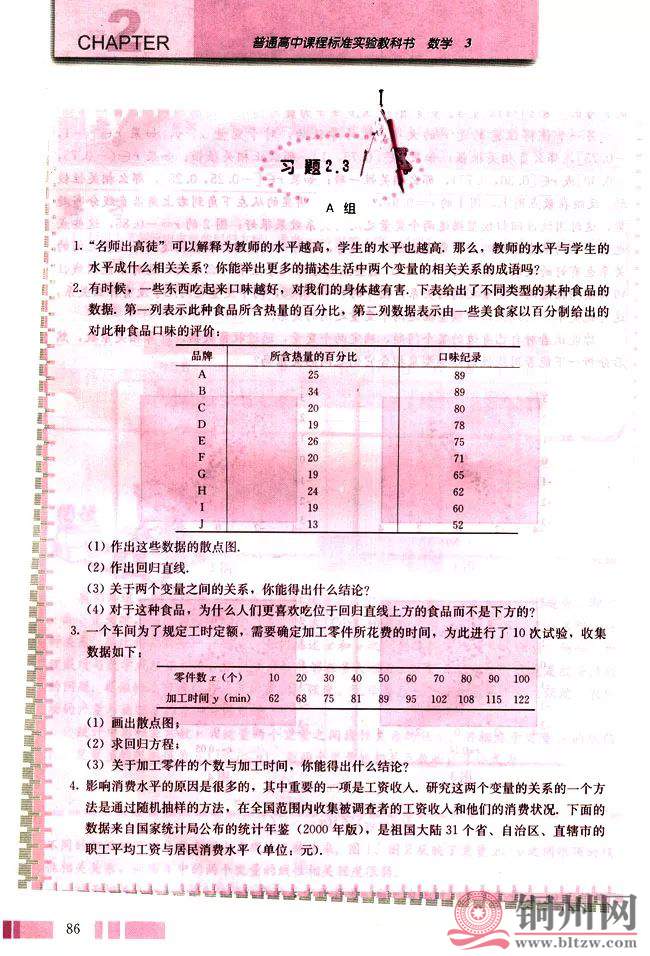 2
CHAPTER
普通高中课程标准实验教科书 数学 3
习题2.3
A 组
1. “名师出高徒”可以解释为教师的水平越高,学生的水平也越高. 那么,教师的水平与学生的
水平成什么相关关系?你能举出更多的描述生活中两个变量的相关关系的成语吗?
2. 有时候,一些东西吃起来口味越好,对我们的身体越有害. 下表给出了不同类型的某种食品的
数据. 第一列表示此种食品所含热量的百分比,第二列数据表示由一些美食家以百分制给出的
对此种食品口味的评价:
品牌 所含热量的百分比 口味纪录
A 25 89
B 34 89
C 20 80
D 19 78
E 26 75
F 20 71
G 19 65
H 24 62
I 19 60
J 13 52
(1) 作出这些数据的散点图.
(2) 作出回归直线.
(3) 关于两个变量之间的关系,你能得出什么结论?
(4) 对于这种食品,为什么人们更喜欢吃位于回归直线上方的食品而不是下方的?
3. 一个车间为了规定工时定额,需要确定加工零件所花费的时间,为此进行了 10 次试验,收集
数据如下:
零件数 x(个) 10 20 30 40 50 60 70 80 90 100
加工时间 y(min) 62 68 75 81 89 95 102 108 115 122
(1) 画出散点图;
(2) 求回归方程;
(3) 关于加工零件的个数与加工时间,你能得出什么结论?
4. 影响消费水平的原因是很多的,其中重要的一项是工资收入. 研究这两个变量的关系的一个方
法是通过随机抽样的方法,在全国范围内收集被调查者的工资收入和他们的消费状况. 下面的
数据来自国家统计局公布的统计年鉴(2000 年版),是祖国大陆 31 个省、自治区、直辖市的
职工平均工资与居民消费水平(单位:元).
86
铜州网
www.bltzw.com